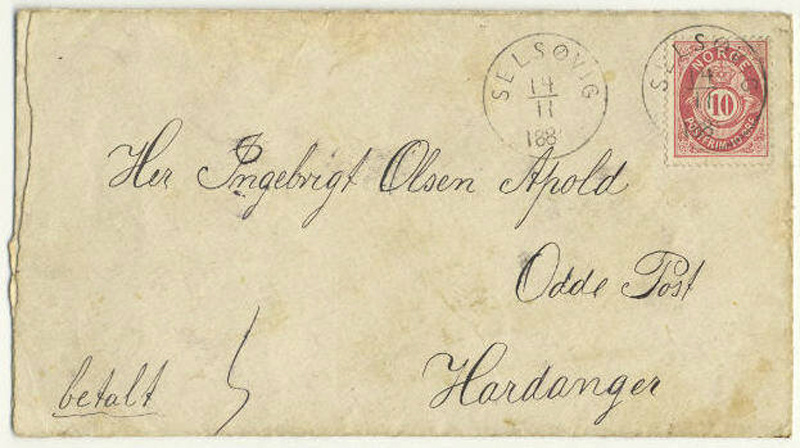 SELSØVIG
14
11
188
SELSØVIG
14
11
NORGE
10
POSTFRIM. 10 ØRE
Her Ingebrigt Olsen Apold
Odde Post
Hardanger
betalt